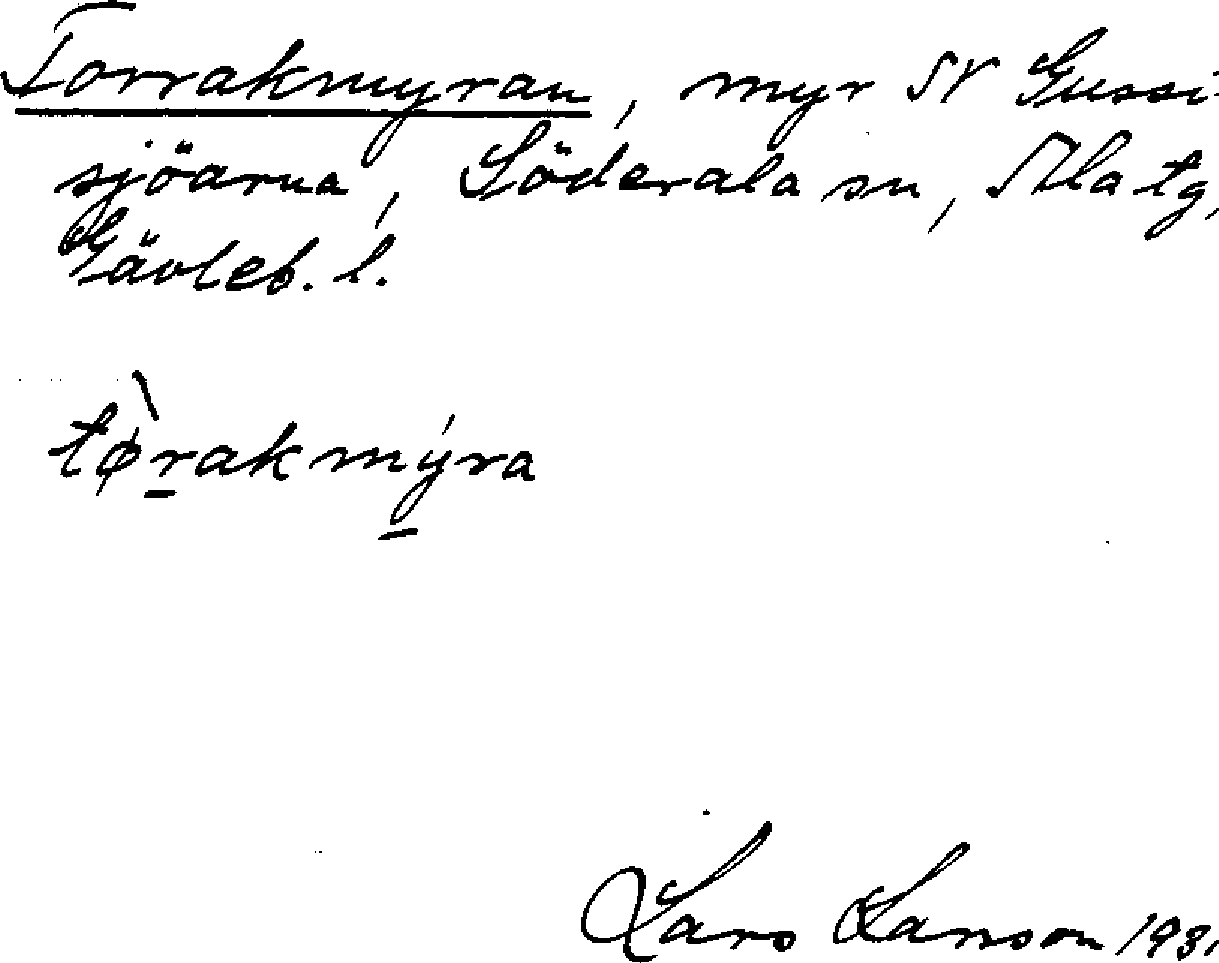 Torrakmyran, myr N Gussi-
sjöarna, Söderala sn, Ala tg,
Gävleb. l.
tø̀rakmýra
Lars Larsson 1931